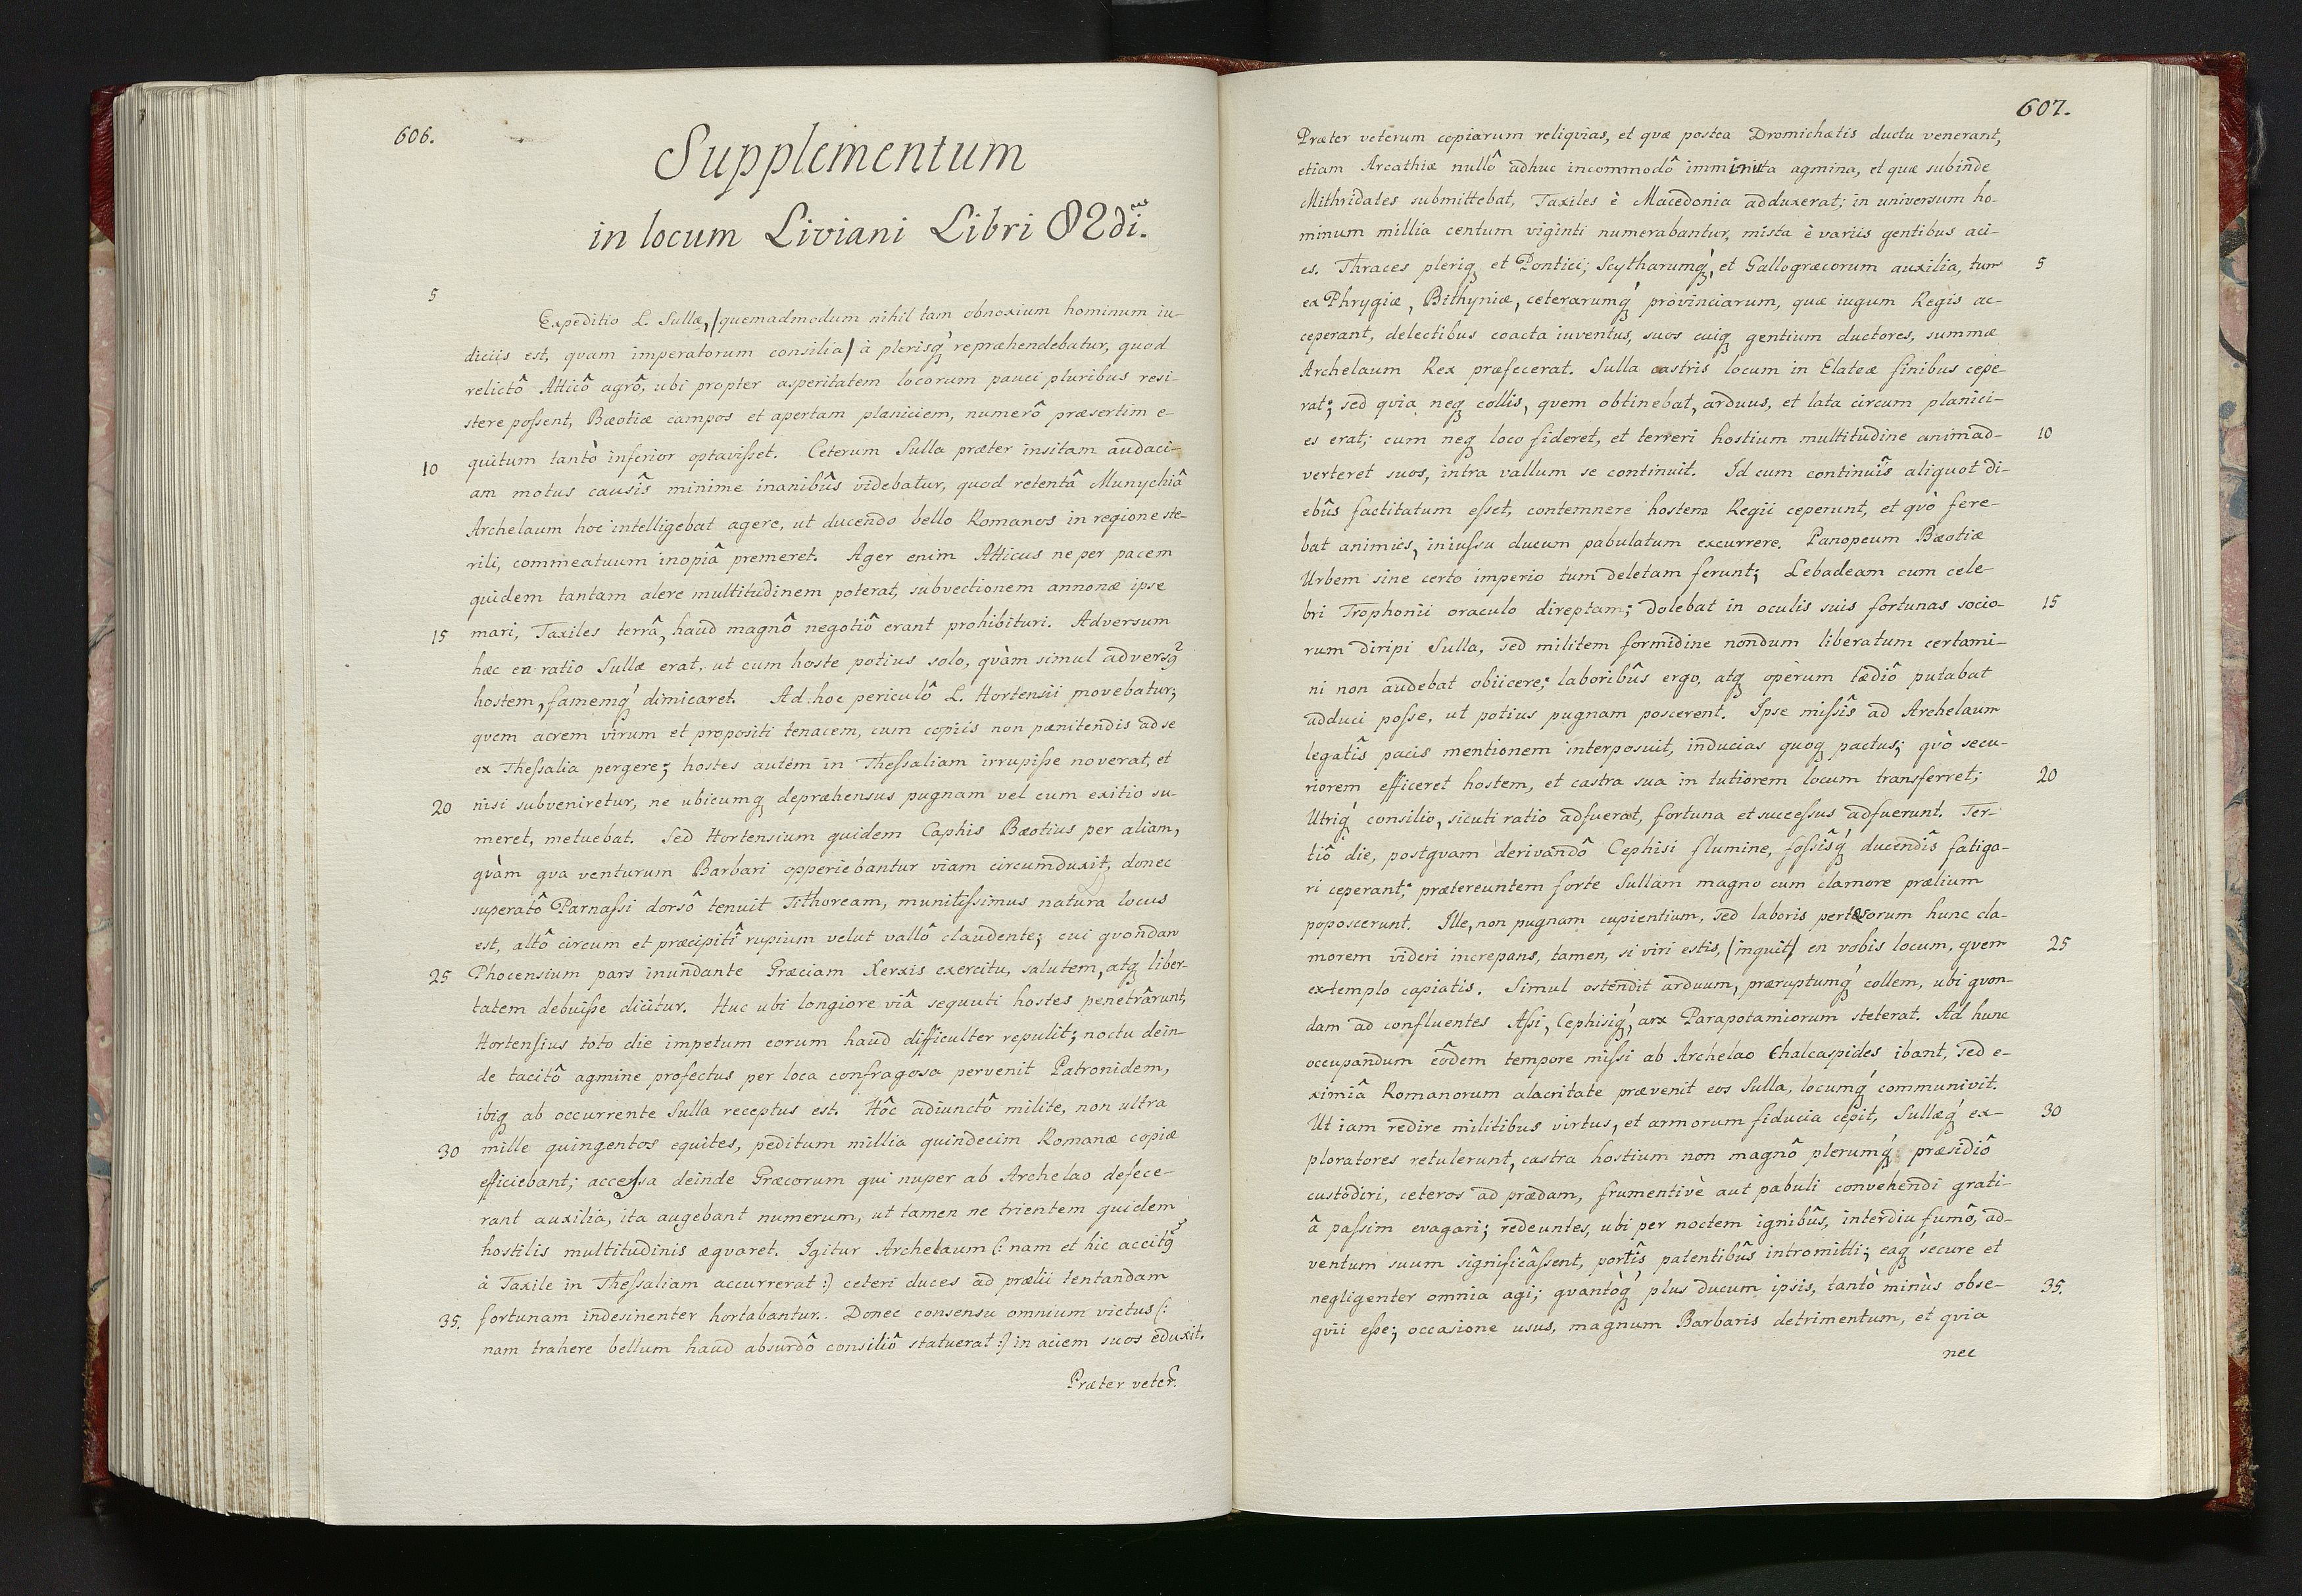 606.
Supplementum
in locum Liviani Libri 82di.
5
Expeditio L. Sullæ, /quemadmodum nihil tam obnoxium hominum iu-
diciis est, quam imperatorum consilia/ à plerisq́ repræhendebatur, quod
relictô Atticô agrô, ubi propter asperitatem locorum pauci pluribus resi-
stere poſsent, Bæotiæ campos et apertam planiciem, numerô præsertim e-
10 quitum tantò inferior optaviſset. Ceterum Sulla præter insitam audaci-
am motus causîs minime inanibûs videbatur, quod retentâ Munychiâ
Archelaum hoc intelligebat agere, ut ducendo bello Romanos in regione ste-
rili, commeatuum inopiâ premeret. Ager enim Atticus ne per pacem
quidem tantam alere multitudinem poterat, subvectionem annonæ ipse
15 mari, Taxiles terrâ, haud magnô negotiô erant prohibituri. Adversum
hæc ea ratio Sullæ erat, ut cum hoste potius solo, qvàm simul adversq̉
hostem, famemq́ dimicaret. Ad hoc periculô L. Hortensii movebatur;
qvem acrem virum et propositi tenacem, cum copiis non pænitendis ad se
ex Theſsalia pergere; hostes autem in Theſsaliam irrupiſse noverat, et
20 nisi subveniretur, ne ubicumq depræhensus pugnam vel cum exitio su-
meret, metuebat. Sed Hortensium quidem Caphis Bæotius per aliam,
qvàm qva venturum Barbari opperiebantur viam circumduxit, donec
superatô Parnaſsi dorsô tenuit Tithoream, munitiſsimus natura locus
est, altô circum et præcipitî rupium velut vallô claudente; cui qvondam
25 Phocensium pars inundante Græciam Xerxis exercitu, salutem, atq liber-
tatem debuiſse dicitur. Huc ubi longiore viâ sequuti hostes penetrârunt,
Hortenſius toto die impetum eorum haud difficulter repulit; noctu dein-
de tacitô agmine profectus per loca confragosa pervenit Patronidem,
ibiq ab occurrente Sulla receptus est. Hôc adiunctô milite, non ultra
30 mille quingentos equites, peditum millia quindecim Romanæ copiæ
efficiebant; acceſsa deinde Græcorum qui nuper ab Archelao defece-
rant auxilia, ita augebant numerum, ut tamen ne trientem quidem
hostilis multitudinis æqvaret. Igitur Archelaum (: nam et hic accitq̉
à Taxile in Theſsaliam accurrerat :) ceteri duces ad prælii tentandam
35. fortunam indesinenter hortabantur. Donec consensu omnium victus (:
nam trahere bellum haud absurdô consiliô statuerat :) in aciem suos eduxit.
Præter veter.
607.
Præter veterum copiarum reliqvias, et quæ postea Dromichætis ductu venerant,
etiam Arcathiæ nullô adhuc incommodô imminuta agmina, et quæ subinde
Mithridates submittebat, Taxiles è Macedonia adduxerat; in universum ho-
minum millia centum viginti numerabantur, mista è variis gentibus aci-
es. Thraces pleriq et Pontici; Scytharumq́, et Gallogræcorum auxilia, tum 5
ex Phrygiæ, Bithyniæ, ceterarumq́ provinciarum, quæ iugum Regis ac-
ceperant, delectibus coacta iuventus, suos cuiq gentium ductores, summæ
Archelaum Rex præfecerat. Sulla castris locum in Elateæ finibus cepe-
rat; sed qvia neq collis, qvem obtinebat, arduus, et lata circum planici-
es erat; cum neq loco fideret, et terreri hostium multitudine animad- 10
verteret suos, intra vallum se continuit. Id cum continuîs aliquot di-
ebûs factitatum eſset, contemnere hostem Regii ceperunt, et qvò fere-
bat animus, iniuſsu ducum pabulatum excurrere. Panopeum Bæotiæ
Urbem sine certo imperio tum deletam ferunt; Lebadeam cum cele-
bri Trophonii oraculo direptam; dolebat in oculis suis fortunas socio- 15
rum diripi Sulla, sed militem formidine nondum liberatum certami-
ni non audebat obiicere; laboribûs ergo, atq operum tædiô putabat
adduci poſse, ut potius pugnam poscerent. Ipse miſsîs ad Archelaum
legatîs pacis mentionem interposuit, inducias quoq pactus; qvò secu-
riorem efficeret hostem, et castra sua in tutiorem locum transferret; 20
Utriq́ consilio, sicuti ratio adfuerat, fortuna et succeſsus adfuerunt. Ter-
tiô die, postqvam derivandô Cephisi flumine, foſsîsq́ ducendîs fatiga-
ri ceperant; prætereuntem forte Sullam magno cum clamore prælium
poposcerunt. Ille, non pugnam cupientium, sed laboris pertæsorum hunc cla-
morem videri increpans, tamen, si viri estis, /inquit/ en vobis locum, qvem 25
extemplo capiatis. Simul ostendit arduum, præruptumq́ collem, ubi qvon-
dam ad confluentes Aſsi, Cephisiq́, arx Parapotamiorum steterat. Ad hunc
occupandum eôdem tempore miſsi ab Archelao Chalcaspides ibant, sed e-
ximiâ Romanorum alacritate prævenit eos Sulla, locumq́ communivit.
Ut iam redire militibus virtus, et armorum fiducia cepit, Sullæq́ ex- 30
ploratores retulerunt, castra hostium non magnô plerumq́ præsidiô
custodiri, ceteros ad prædam, frumentivè aut pabuli convehendi grati-
â paſsim evagari; redeuntes, ubi per noctem ignibûs, interdiu fumô, ad-
ventum suum significâſsent, portîs patentibûs intromitti; eaq́ secure et
negligenter omnia agi; qvantòq́ plus ducum ipsis, tantò minùs obse- 35.
qvii eſse; occasione usus, magnum Barbaris detrimentum, et qvia
nec